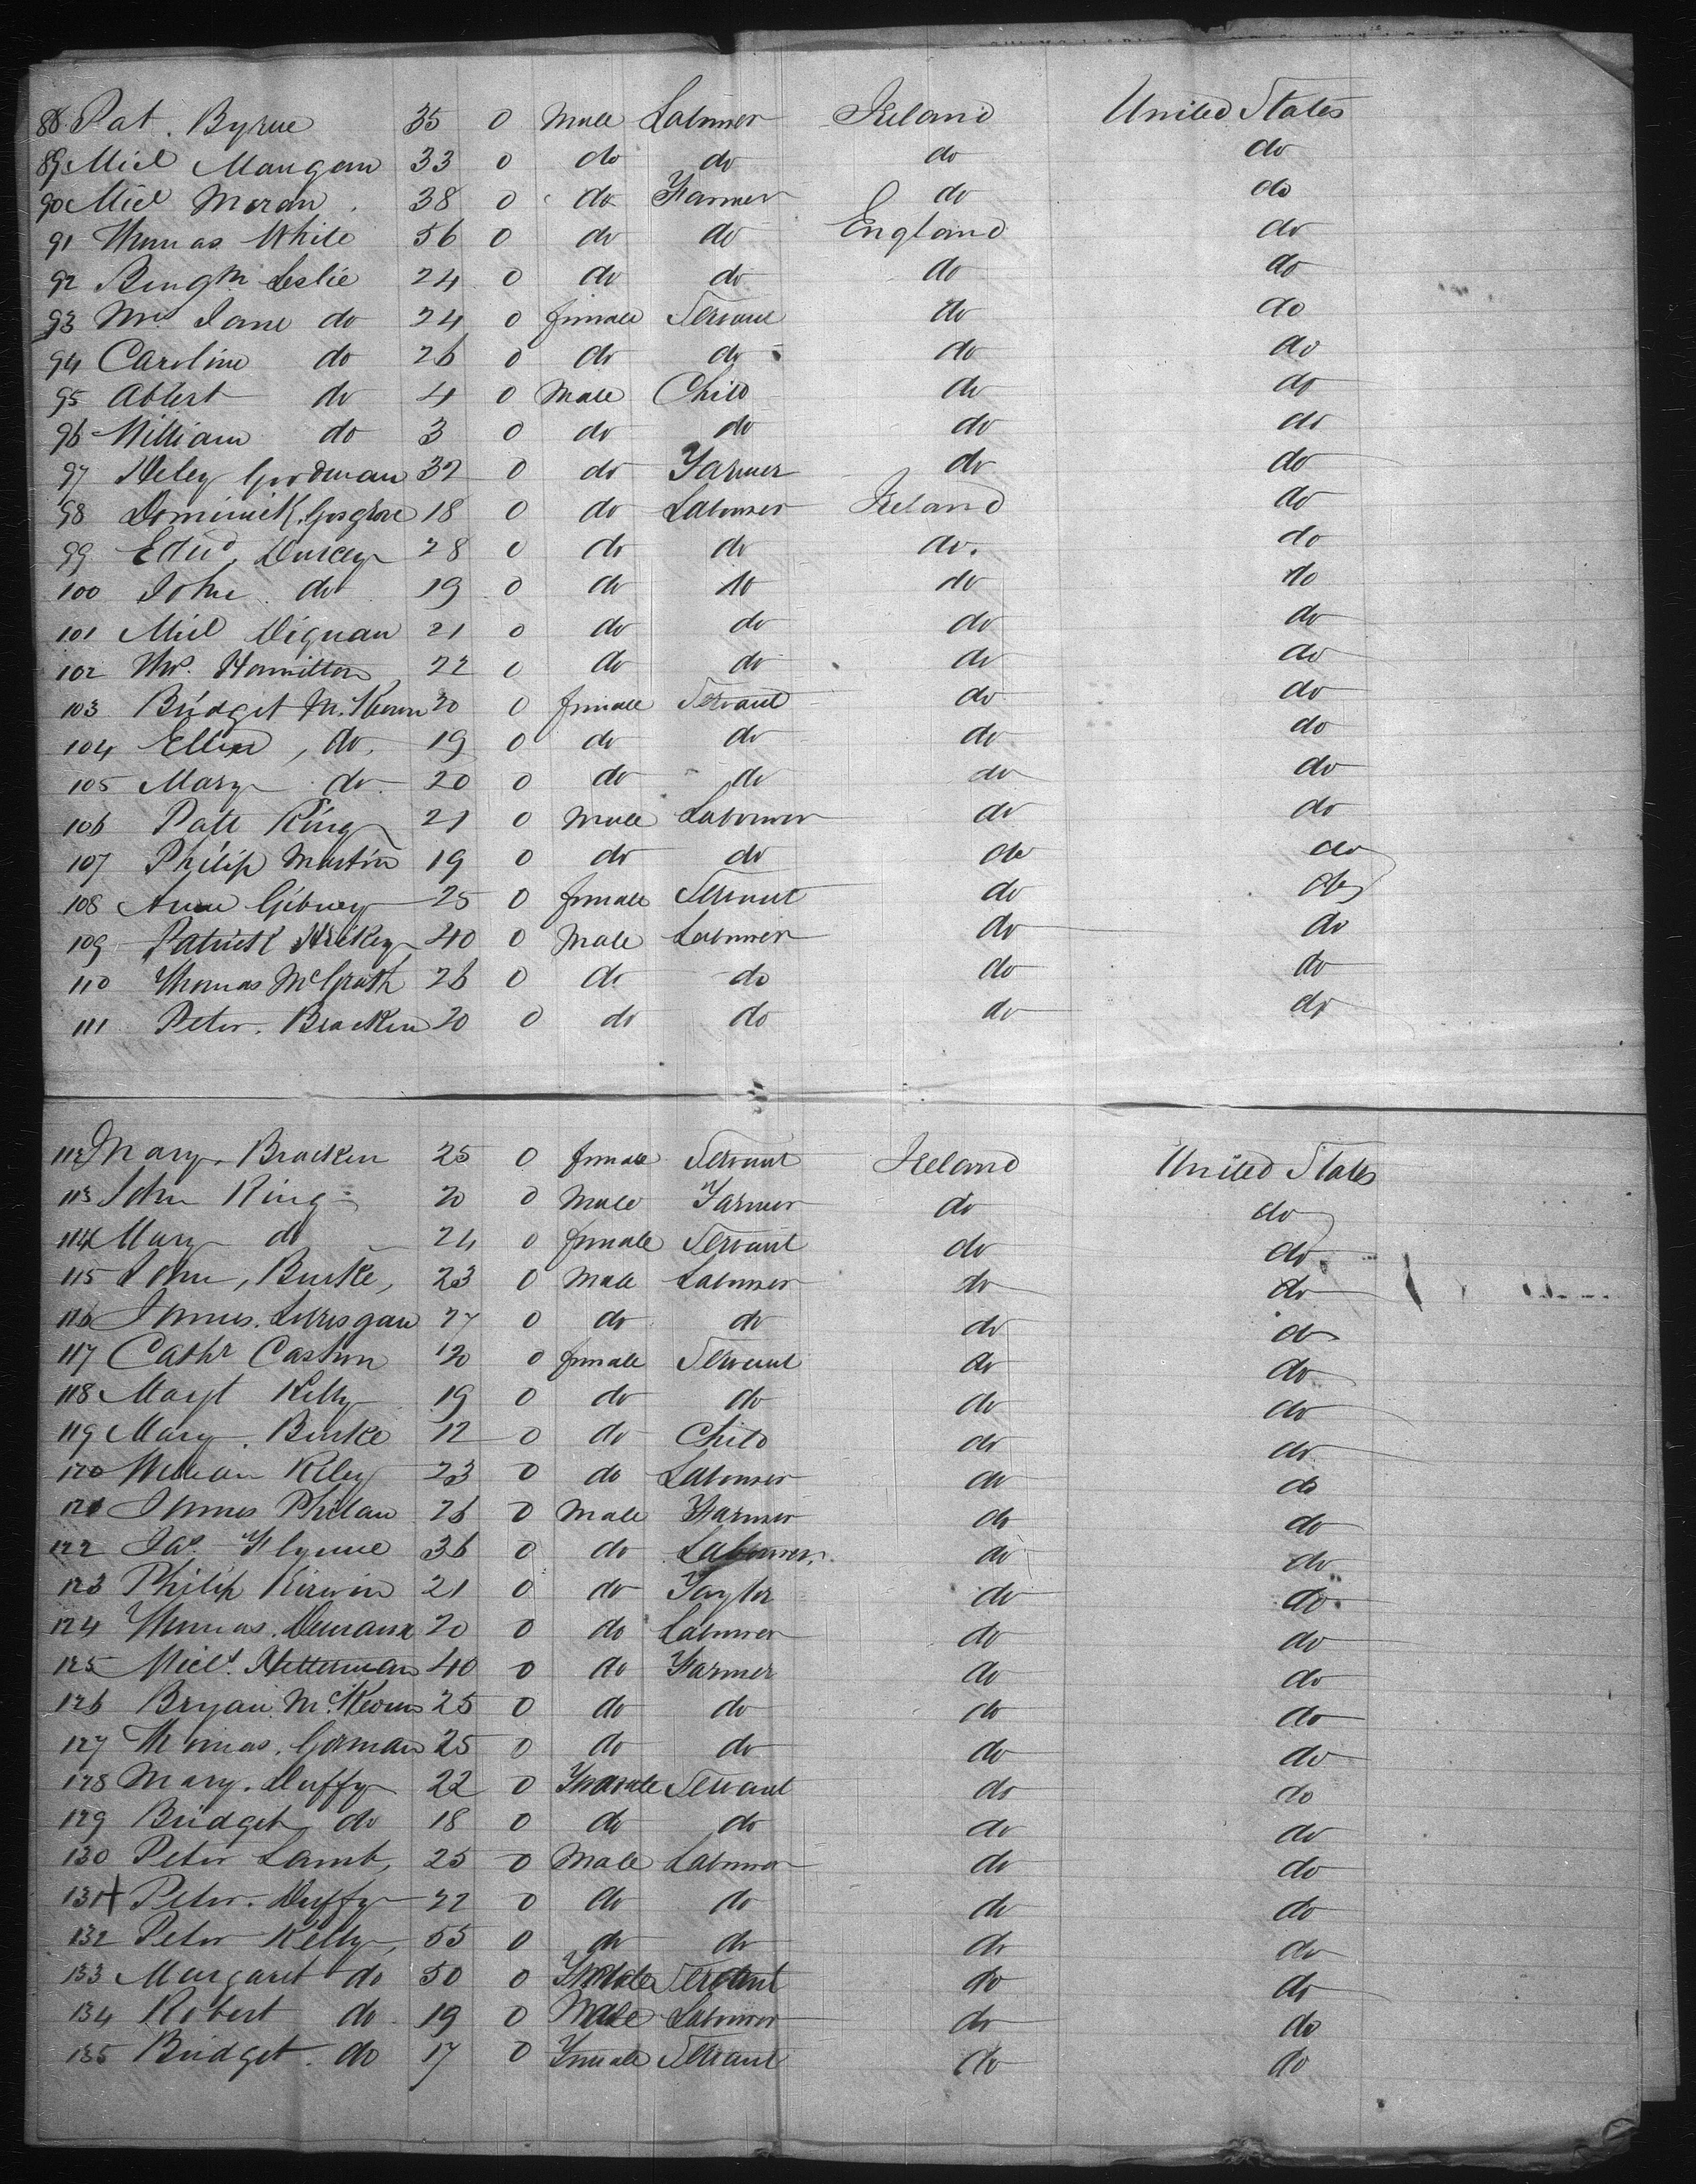 88 Pat. Byrne 35 0 Male Labourer Ireland United States
89 Micl Mangan 33 0 do do do do
90 Micl Moran 38 0 do Farmer do do
91 Thomas White 56 0 do do England do
92 Bengm Leslie 24 0 do do do do
93 Mrs Jane do 24 0 female Servant do do
94 Caroline do 26 0 do do do do
95 Albert do 4 0 Male Child do do
96 William do 3 0 do do do do
97 Goodman 32 0 do Farmer do do
98 Dominick Cosgrove 18 0 do Labourer Ireland do
99 Edwd. Darcey 28 0 do do do. do
100 John do 19 0 do do do do
101 Micl Dignan 21 0 do do do do
102 Thos. Hamilton 22 0 do do do do
103 Bridget McKeown 20 0 female Servant do do
104 Ellen, do. 19 0 do do do do
105 Mary do 20 0 do do do do
106 Patt King 21 0 Male Labourer do do
107 Philip Martin 19 0 do do do do
108 Anne Gibney 25 0 female Servant do do
109 Patrick Hickey 40 0 Male Labourer do do
110 Thomas McGrath 26 0 do do do do
111 Peter. Bracken 20 0 do do do do
112 Mary. Bracken 25 0 female Servant Ireland United States
113 John King 20 0 Male Farmer do do
114 Mary do 24 0 female Servant do do
115 John, Burke, 23 0 Male Labourer do do
116 James. 27 0 do do do do
117 Cathr 20 0 female Servant do do
118 Margt Kelly 19 0 do do do do
119 Mary. Burke 12 0 do Child do do
120 William Riley 23 0 do Labourer do do
121 James Phelan 26 0 Male Farmer do do
122 Jas. Flynne 36 0 do Labourer. do do
123 Philip Kirwin 21 0 do Taylor do do
124 Thomas. 20 0 do Labourer do do
125 Micl. Hetterman 40 0 do Farmer do do
126 Bryan McKeown 25 0 do do do do
127 Thomas. Gorman 25 0 do do do do
128 Mary. Duffy 22 0 Female Servant do do
129 Bridget do 18 0 do do do do
130 Peter Lamb, 25 0 Male Labourer do do
131 + Peter. Duffy 22 0 do do do do
132 Peter Kelly, 55 0 do do do do
133 Margaret do 50 0 Female Servant do do
134 Robert do 19 0 Male Labourer do do
135 Bridget. do 17 0 Female Servant do do